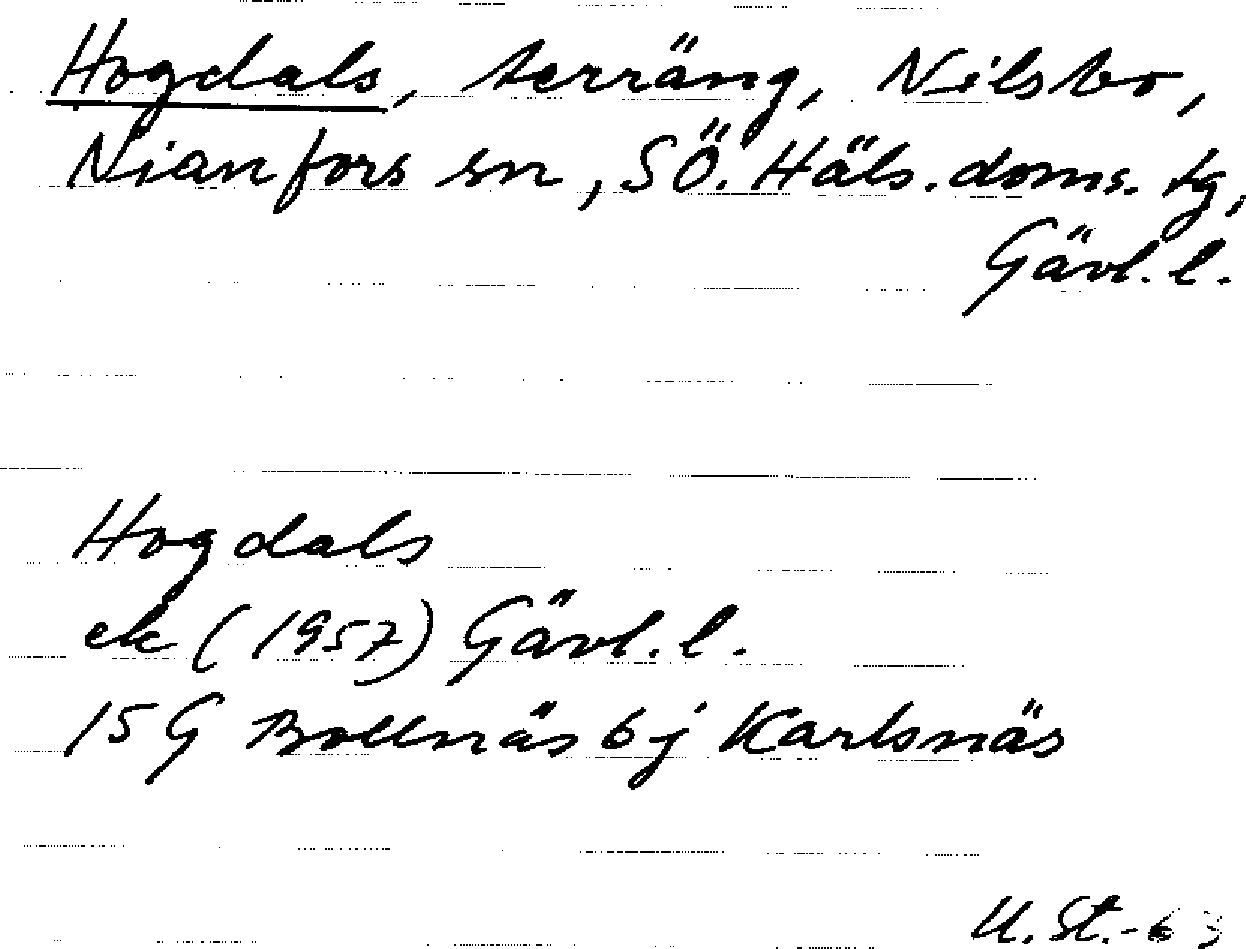 Hogdals, terräng, Nilsbo,
Nianfors sn, SÖ. Häls. doms. tg,
Gävl. l.
Hogdals
ek (1957) Gävl. l.
15 G Bollnäs 6 j Karlsnäs
U. St.-63